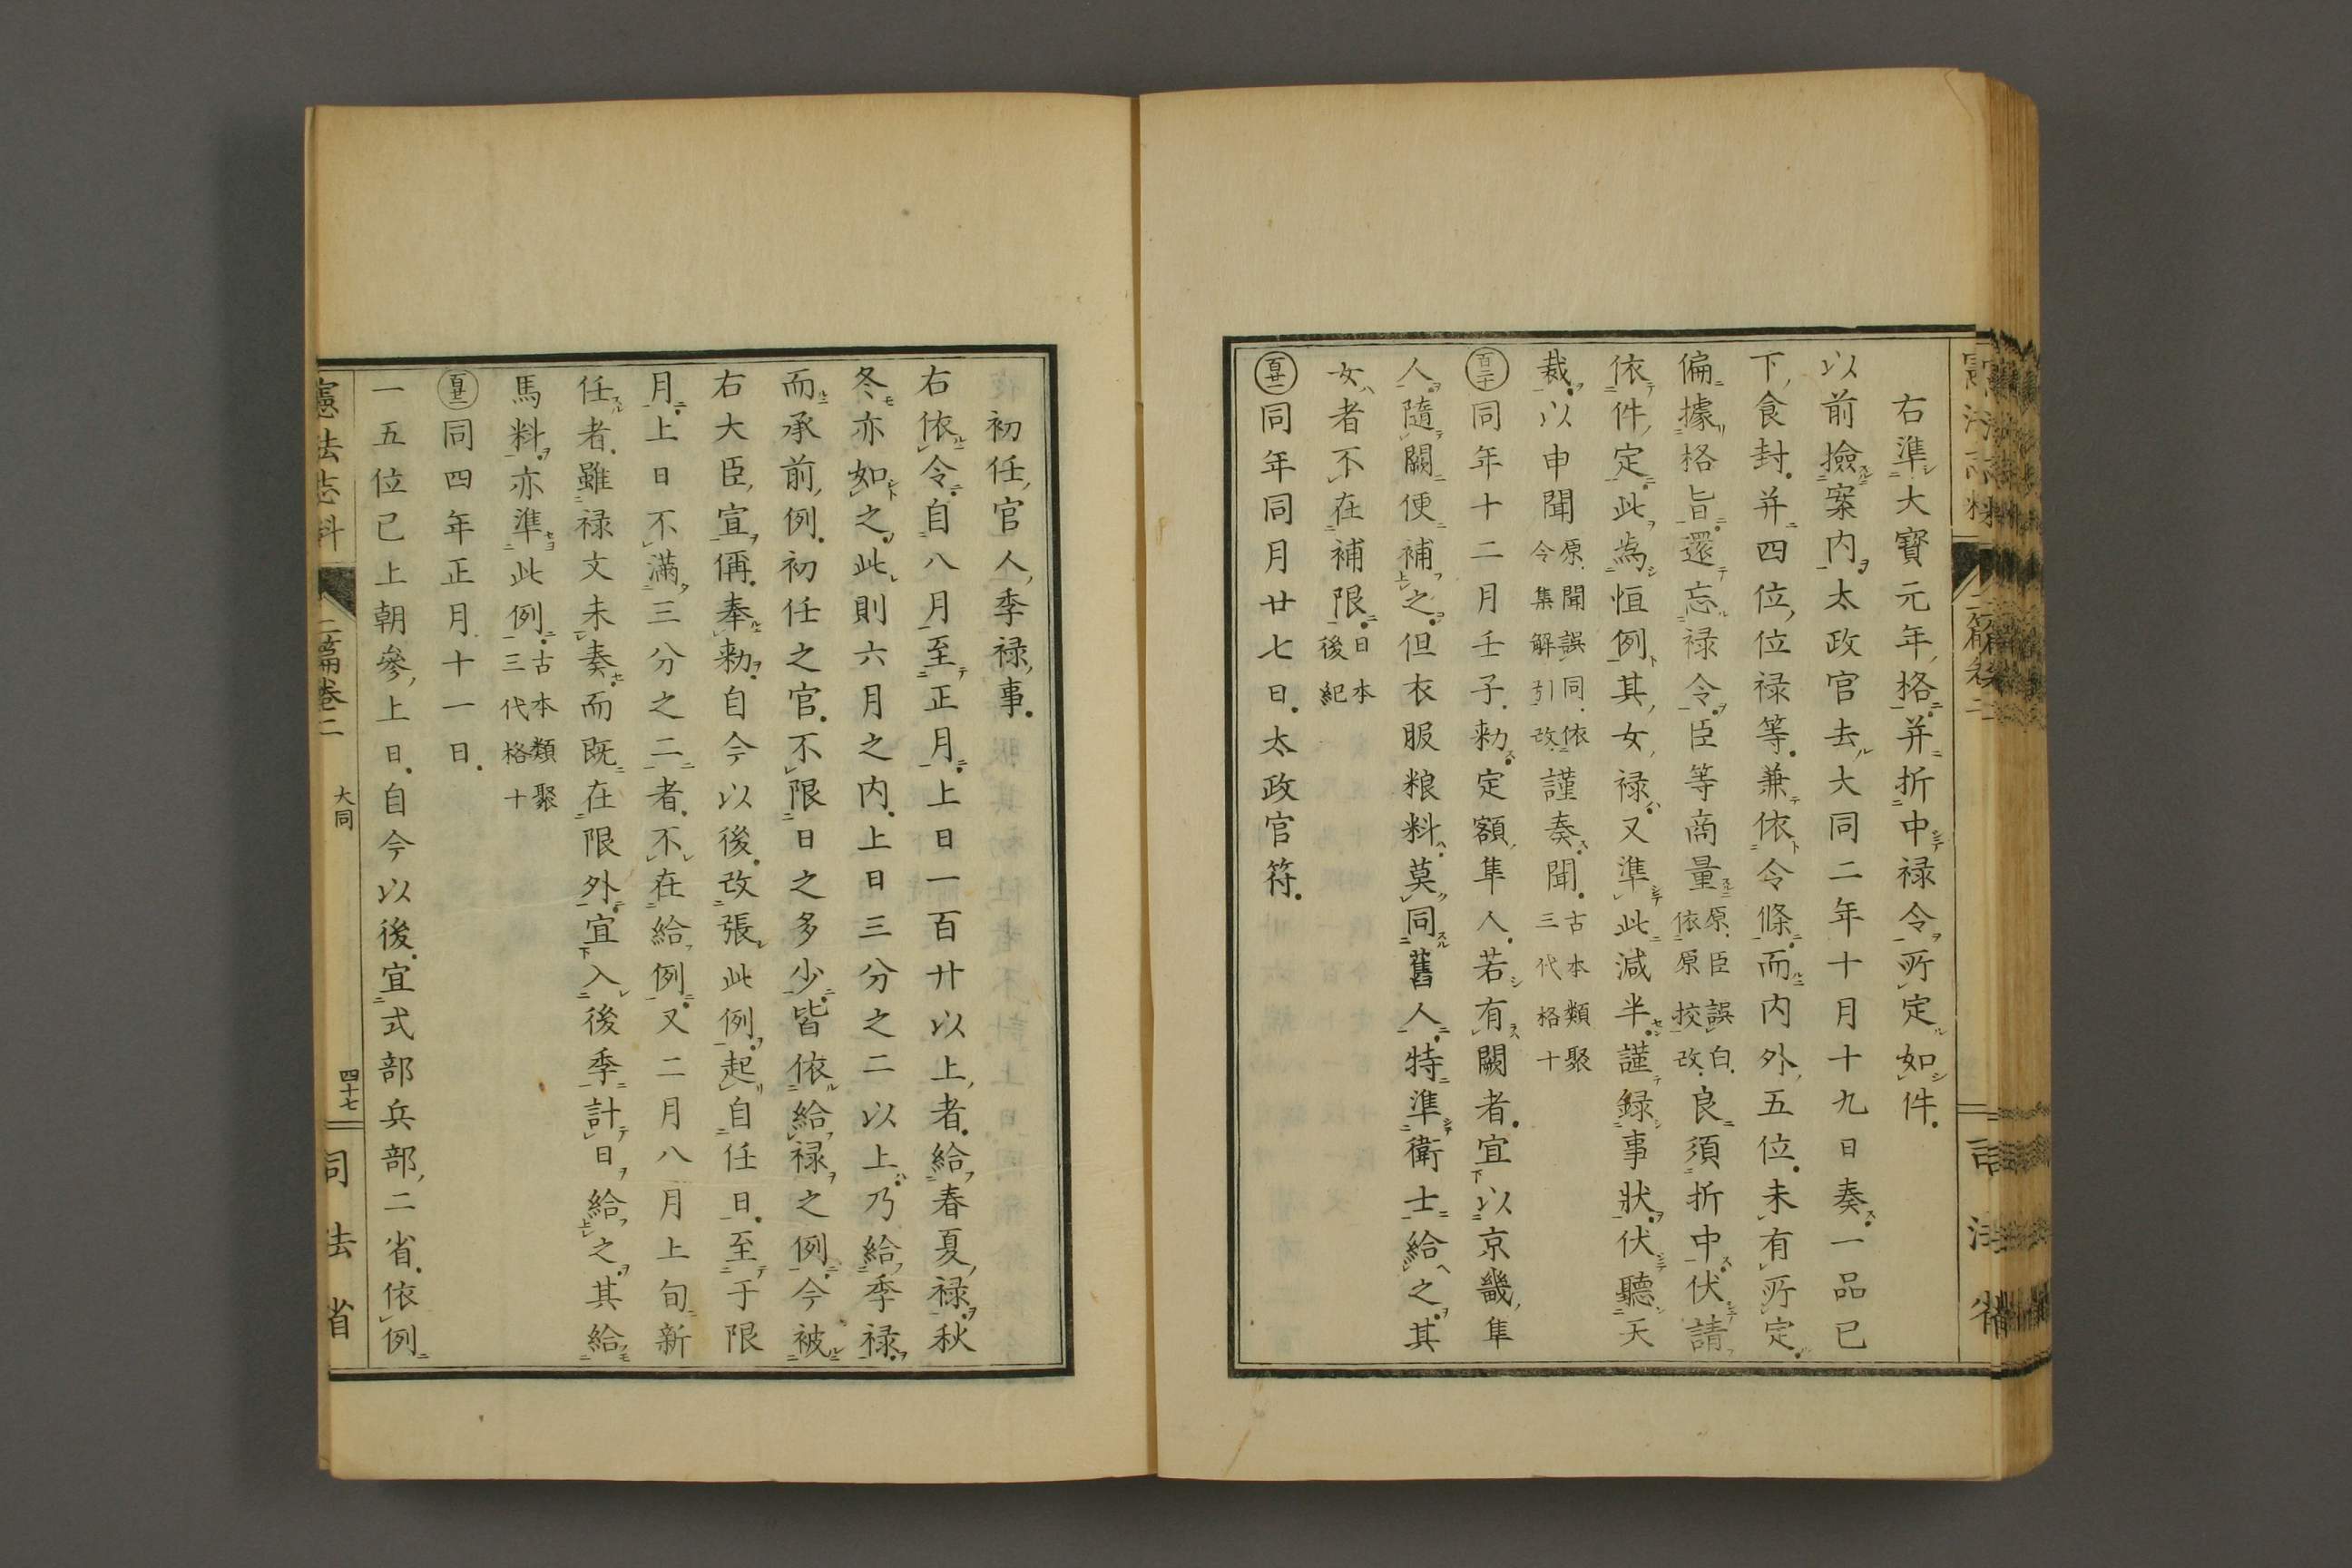 右準大寶元年格并折中禄令所定如件
以前撿案内太政官去大同二年十月十九日奏一品已
下食封并四位位禄等兼依令條而内外五位未有所定
偏據格旨還忘禄令臣等商量原臣誤白依原挍改良須折中伏請
依件定此為恒例其女禄又準此減半謹録事狀伏聽天
裁以申聞原聞誤同依令集解引改謹奏聞古本類聚三代格十
百二十同年十二月壬子勑定額隼人若有闕者宜以京畿隼
人隨闕便補之但衣服粮料莫同舊人特準衛士給之其
女者不在補限日本後紀
百廿一同年同月廿七日太政官符
初任官人季禄事
右依令自八月至正月上日一百廿以上者給春夏禄秋
冬亦如之此則六月之内上日三分之二以上乃給季禄
而承前例初任之官不限日之多少皆依給禄之例今被
右大臣宣偁奉勑自今以後改張此例起自任日至于限
月上日不滿三分之二者不在給例又二月八月上旬新
任者雖禄文未奏而既在限外宜入後季計日給之其給
馬料亦準此例古本類聚三代格十
百廿二同四年正月十一日
一五位已上朝參上日自今以後宜式部兵部二省依例
憲法志料
二篇卷二
大同
四十七
司法省